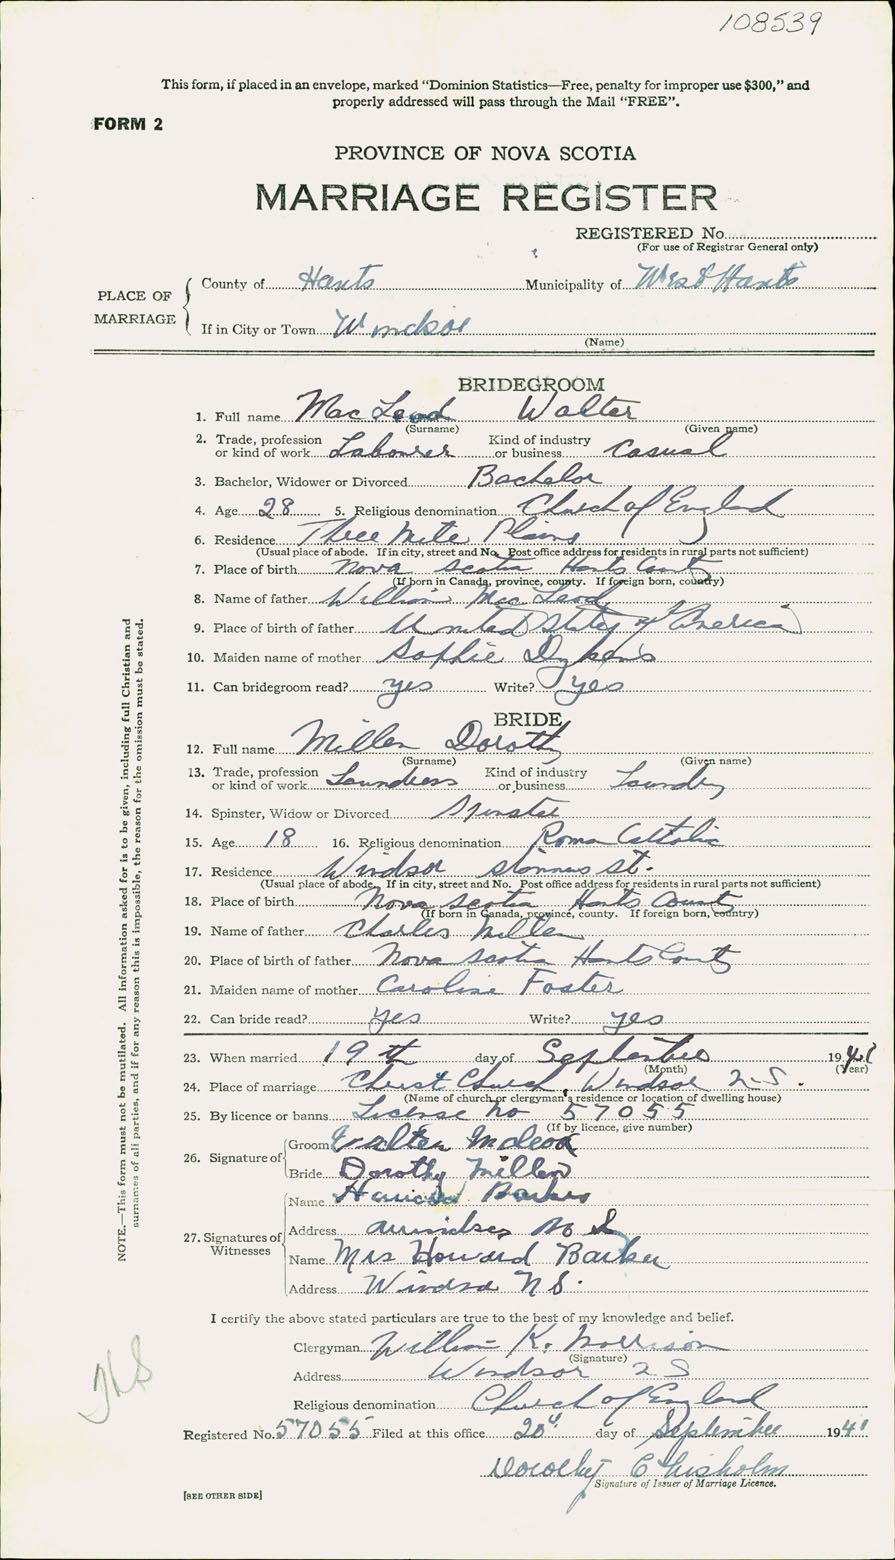 108539
This form, if placed in an envelope, marked "Dominion Statistics—Free, penalty for improper use $300," and
properly addressed will pass through the Mail "FREE".
FORM 2
PROVINCE OF NOVA SCOTIA
MARRIAGE REGISTER
REGISTERED No.
(For use of Registrar General only)
PLACE OF MARRIAGE
County of Hants Municipality of West Hants
If in City or Town Windsor
(Name)
BRIDEGROOM
1. Full name MacLeod Walter
(Surname) (Given name)
2. Trade, profession or kind of work Labourer Kind of industry or business Casual
3. Bachelor, Widower or Divorced Bachelor
4. Age 28 5. Religious denomination Church of England
6. Residence Three Mile Plains
(Usual place of abode. If in city, street and No. Post office address for residents in rural parts not sufficient)
7. Place of birth Nova Scotia Hants County
(If born in Canada, province, county. If foreign born, country)
8. Name of father William MacLeod
9. Place of birth of father United States of America
10. Maiden name of mother Sophie
11. Can bridegroom read? yes Write? yes
BRIDE
12. Full name Millen Dorothy
(Surname) (Given name)
13. Trade, profession or kind of work Laundress Kind of industry or business Laundry
14. Spinster, Widow or Divorced Spinster
15. Age 18 16. Religious denomination Roman Catholic
17. Residence Windsor st.
(Usual place of abode. If in city, street and No. Post office address for residents in rural parts not sufficient)
18. Place of birth Nova Scotia Hants County
(If born in Canada, province, county. If foreign born, country)
19. Name of father Charles Millen
20. Place of birth of father Nova Scotia Hants County
21. Maiden name of mother Caroline Foster
22. Can bride read? yes Write? yes
23. When married 19th day of September 1941
(Month) (Year)
24. Place of marriage Christ Church, Windsor N S.
(Name of church or clergyman's residence or location of dwelling house)
25. By licence or banns License No 57055
(If by licence, give number)
26. Signature of
Groom Walter Mcleod
Bride Dorothy Millen
27. Signatures of Witnesses
Name Barker
Address N S
Name Mrs Howard Barker
Address Windsor N S.
I certify the above stated particulars are true to the best of my knowledge and belief.
Clergyman William K. Morrison
(Signature)
Address Windsor N S
Religious denomination Church of England
Registered No. 57055 Filed at this office 20th day of September 1941
Dorothy Chisholm
Signature of Issuer of Marriage Licence.
[SEE OTHER SIDE]
NOTE.—This form must not be mutilated. All information asked for is to be given, including full Christian and
surnames of all parties, and if for any reason this is impossible, the reason for the omission must be stated.